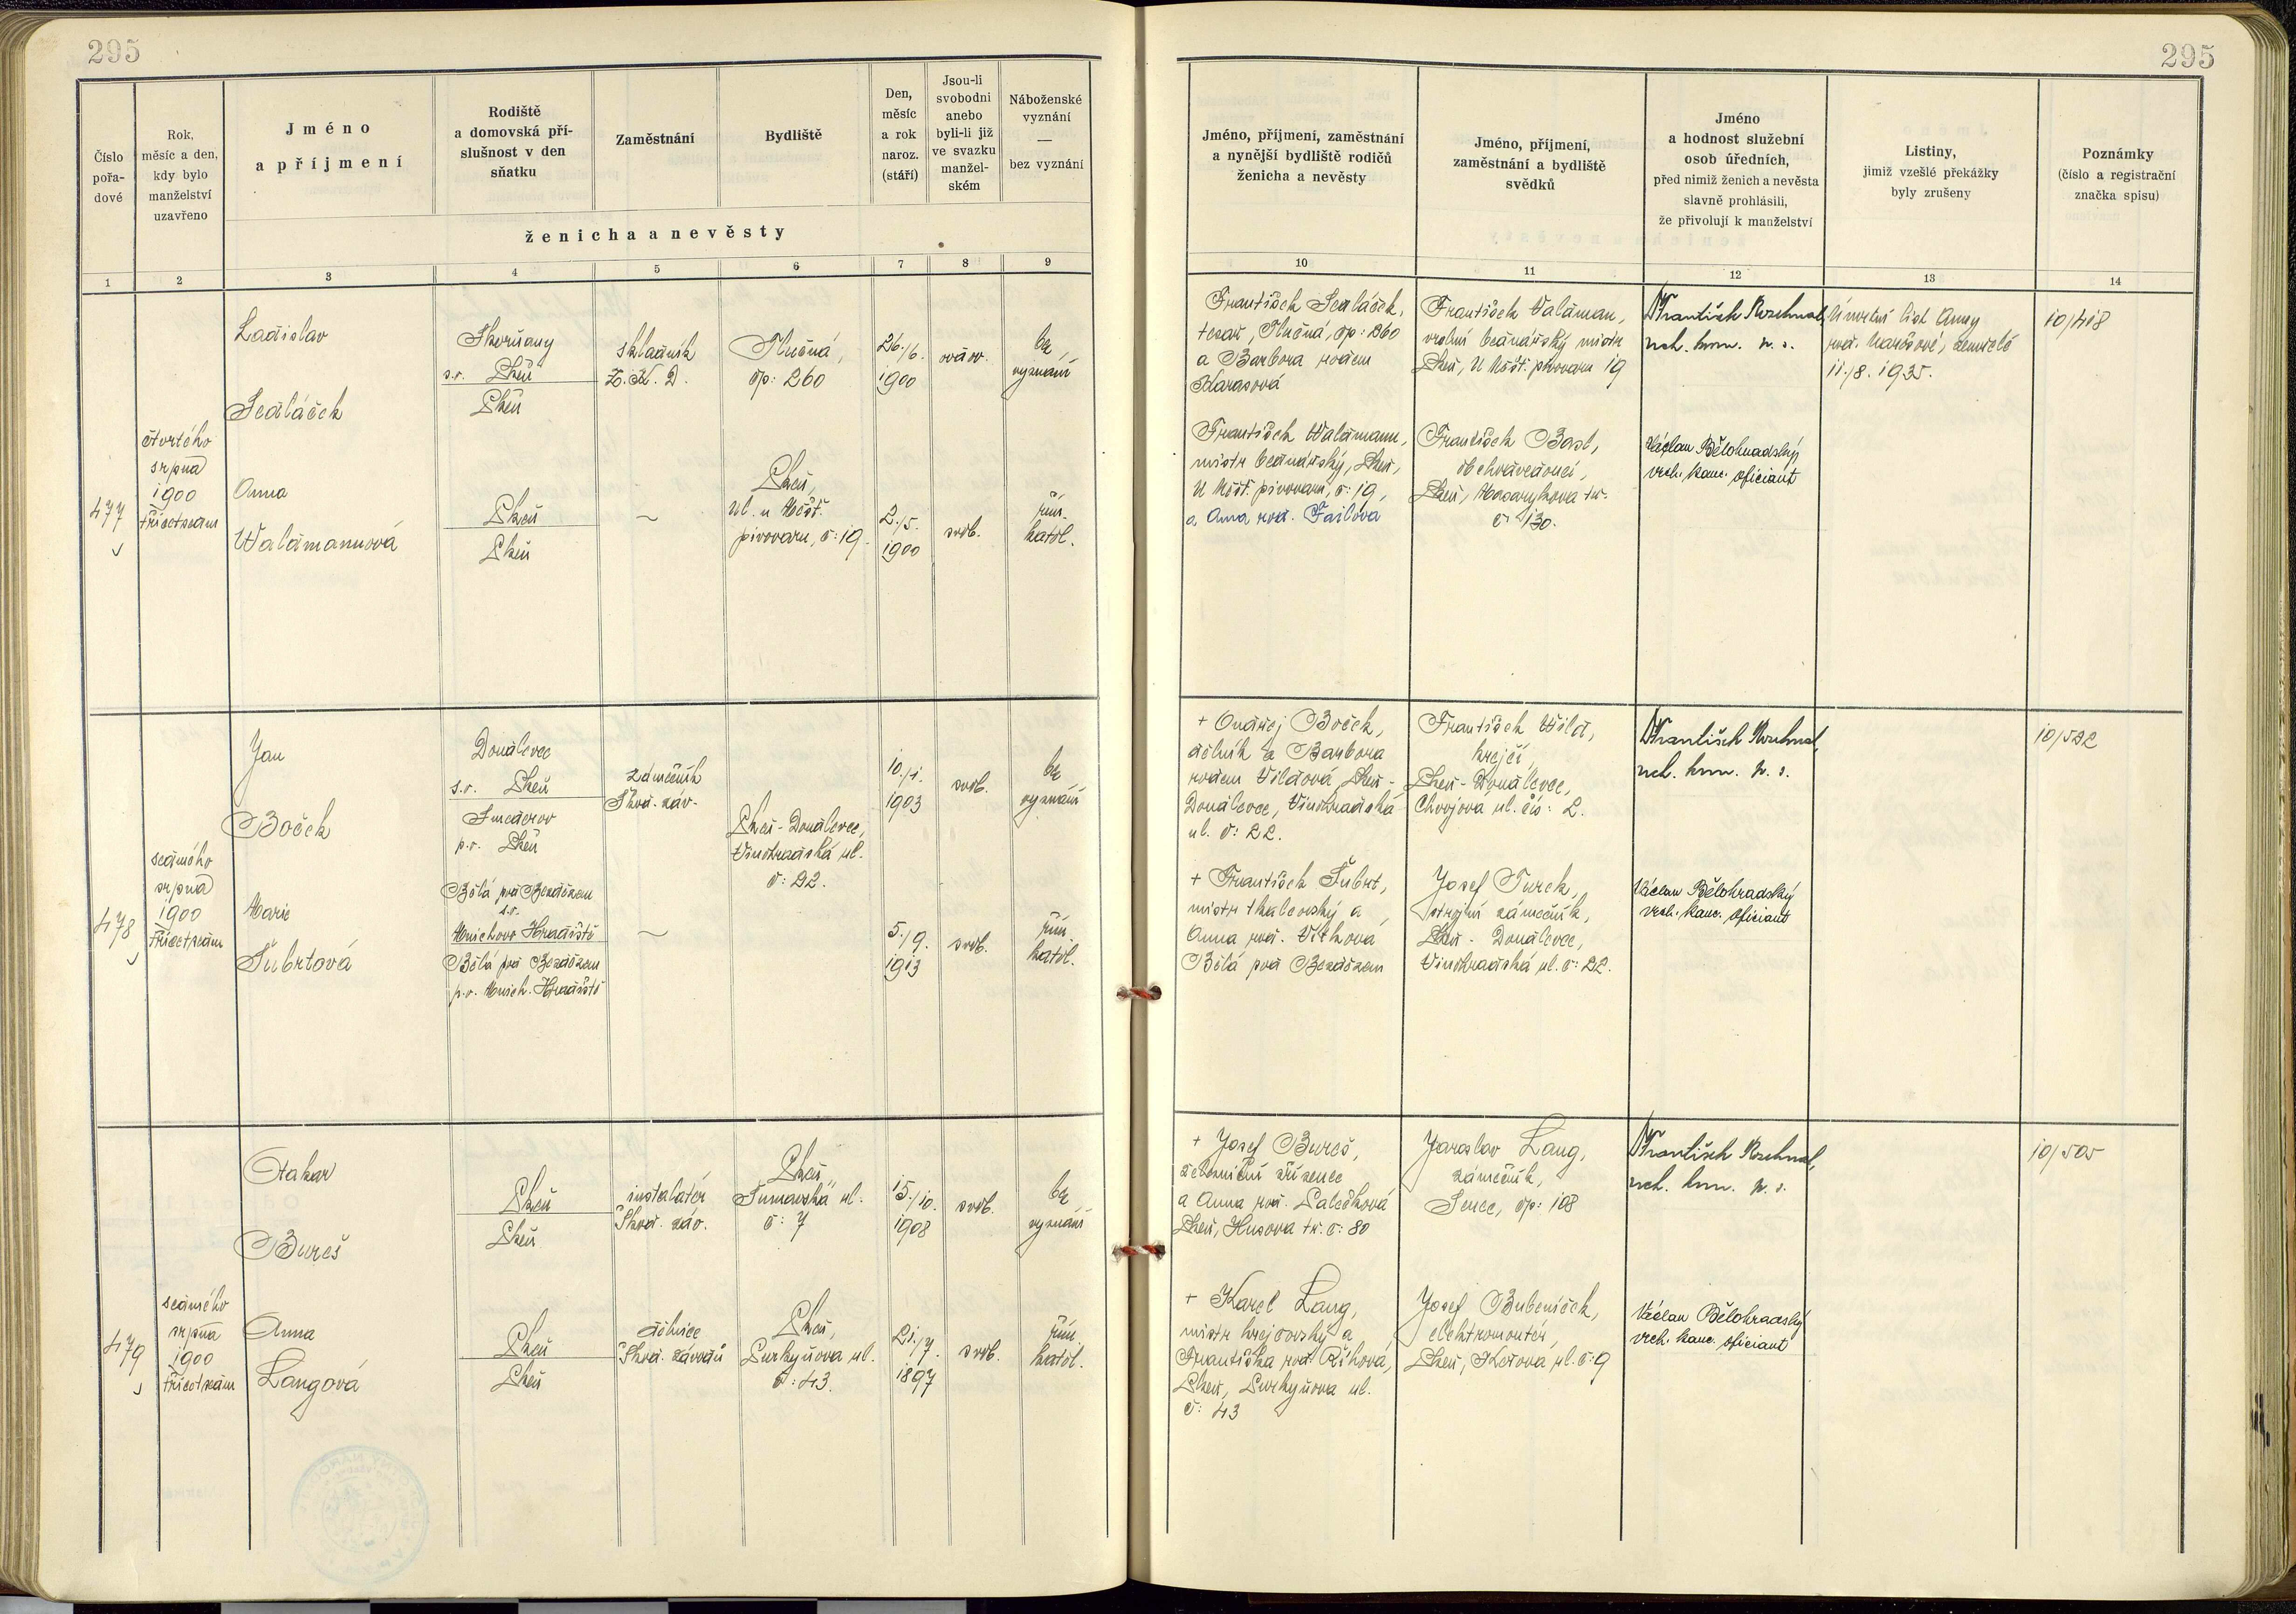 295
295
Číslo pořa- dové
Rok, měsíc a den, kdy bylo manželství uzavřeno
Jméno a příjmení
Rodiště a domovská pří- slušnost v den sňatku
Zaměstnání
Bydliště
Den, měsíc a rok naroz. (stáří)
Jsou-li svobodni anebo byli-li již ve svazku manžel- ském
Náboženské vyznání — bez vyznání
ženicha a nevěsty
Jméno, příjmení, zaměstnání a nynější bydliště rodičů ženicha a nevěsty
Jméno, příjmení, zaměstnání a bydliště svědků
Jméno a hodnost služební osob úředních, před nimiž ženich a nevěsta slavně prohlásili, že přivolují k manželství
Listiny, jimiž vzešlé překážky byly zrušeny
Poznámky (číslo a registrační značka spisu)
1 2 3 4 5 6 7 8 9 10 11 12 13 14
477
čtvrtého
srpna
1900
třicetsedm
Ladislav
Sedláček
s.o. Plzeň
Plzeň
skladník
Hlučná,
čp: 260
26./6.
1900
ovdov.
bez
vyznání
Anna
Waldmannová
Plzeň
Plzeň
~
Plzeň,
ul. u Měšť.
pivovaru, č: 19.
2./5.
1900
svob.
řím.
katol.
František Sedláček,
tesař, Hlučná, čp: 260
a Barbora rodem
Karasová
František Waldmann,
mistr bednářský, Plzeň,
U Měšť. pivovaru, č: 19,
a Anna rod. Failova
František Valdman,
vrchní bednářský mistr
Plzeň, U Měšť. pivovaru 19
František Basl,
obchodvedoucí,
Plzeň, Masarykova tř.
č 130.
František
Václav Bělohradský
vrch. kanc. oficiant
Úmrtní list Anny
zemřelé
11./8. 1935.
10/418
478
sedmého
srpna
1900
třicetsedm
Jan
Boček
Doudlevce
s.o. Plzeň
p.o. Plzeň
zámečník
Škod. záv.
Plzeň-Doudlevce,
Vinohradská ul.
č: 22.
10./1.
1903
svob.
bez
vyznání
Marie
Šubrtová
Bělá pod Bezdězem
s.o.
Mnichovo Hradiště
Bělá pod Bezdězem
p.o. Mnich. Hradiště
~
5./9.
1913
svob.
řím.
katol.
+ Ondřej Boček,
dělník a Barbora
rodem Vildová, Plzeň-
Doudlevce, Vinohradská
ul. č: 22.
+ František Šubrt,
mistr tkalcovský a
Anna rod. Vítková
Bělá pod Bezdězem
František Wild,
krejčí,
Plzeň-Doudlevce,
Chvojova ul. čís: 2.
Josef Turek,
strojní zámečník,
Plzeň - Doudlevce,
Vinohradská ul. č: 22.
František
Václav Bělohradský
vrch. kanc. oficiant
10/522
479
sedmého
srpna
1900
třicetsedm
Otakar
Bureš
Plzeň
Plzeň
instalatér
Škod. záv.
Plzeň,
č: 7
15./10.
1908
svob.
bez
vyznání
Anna
Langová
Plzeň
Plzeň
dělnice
Škod. závodů
Plzeň,
Purkyňova ul.
č: 43.
21./7.
1897
svob.
řím.
katol.
+ Josef Bureš,
železniční zřízenec
a Anna rod. Palečková
Plzeň, Husova tř. č: 80
+ Karel Lang,
mistr krejčovský a
Františka rod. Říhová,
Plzeň, Purkyňova ul.
č: 43
Jaroslav Lang,
zámečník,
Senec, čp: 108
Josef Bubeníček,
elektromontér,
František
Václav Bělohradský
vrch. kanc. oficiant
10/505